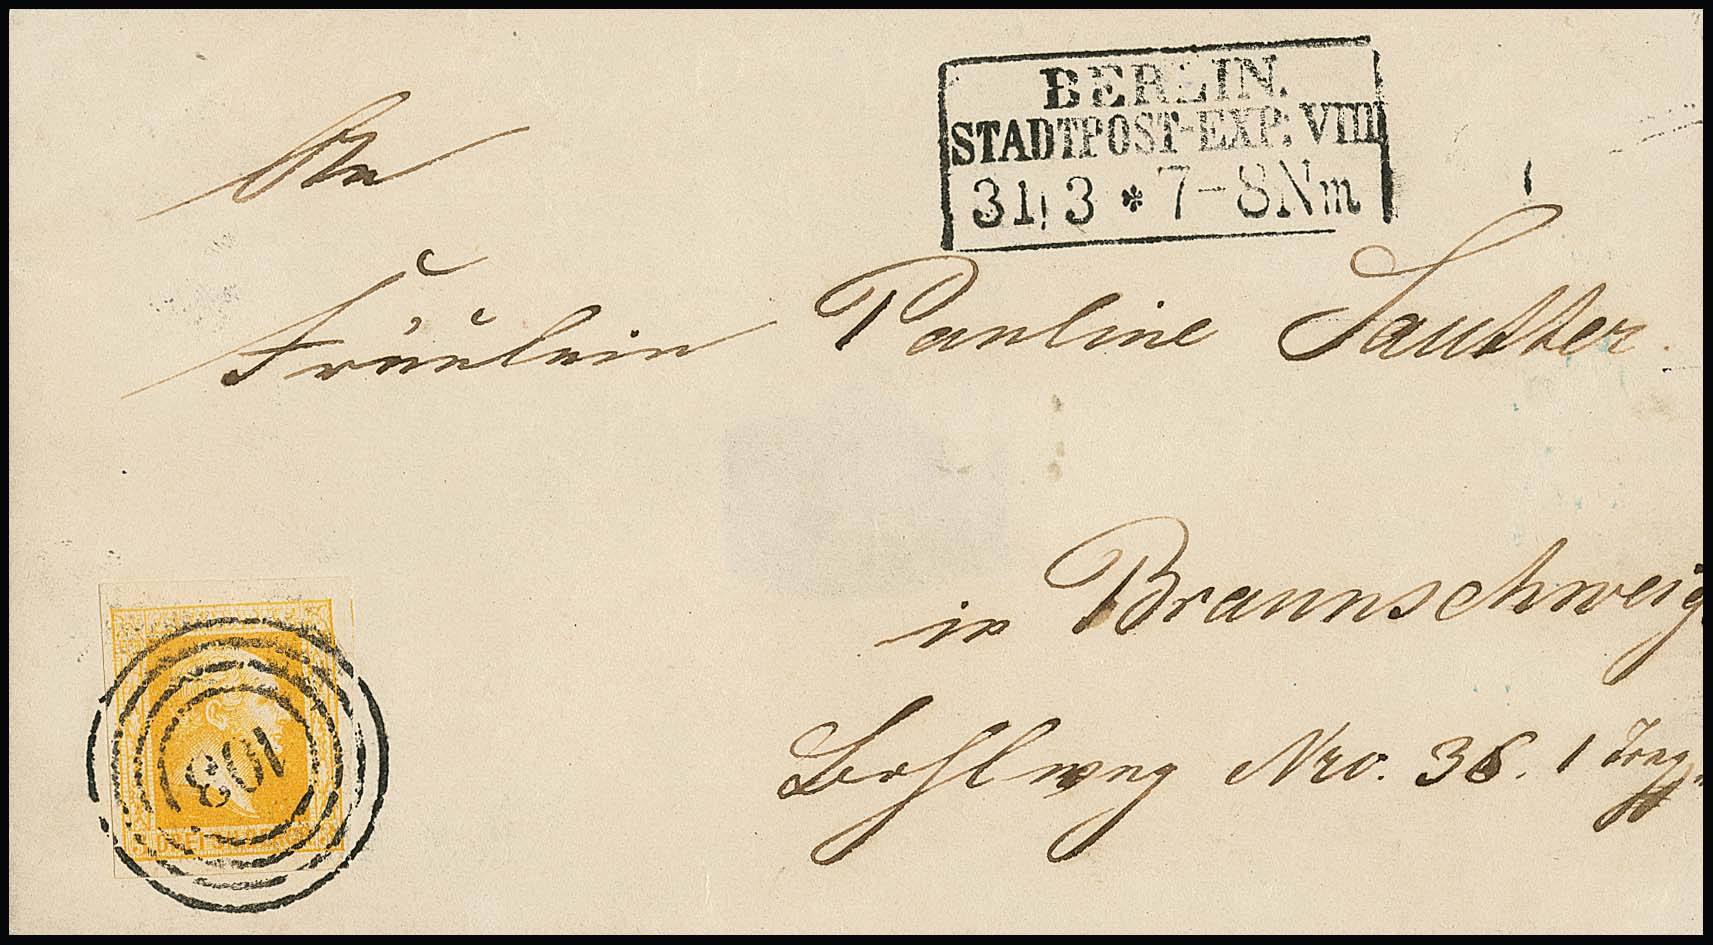 BERLIN.
STADTPOST-EXP: VIII
31/3 * 7-8 Nm
An
Fräulein Pauline Sautter.
in Braunschweig
Bohlweg Nro. 38. 1 Trepp
108
3 SILBERGR. 3